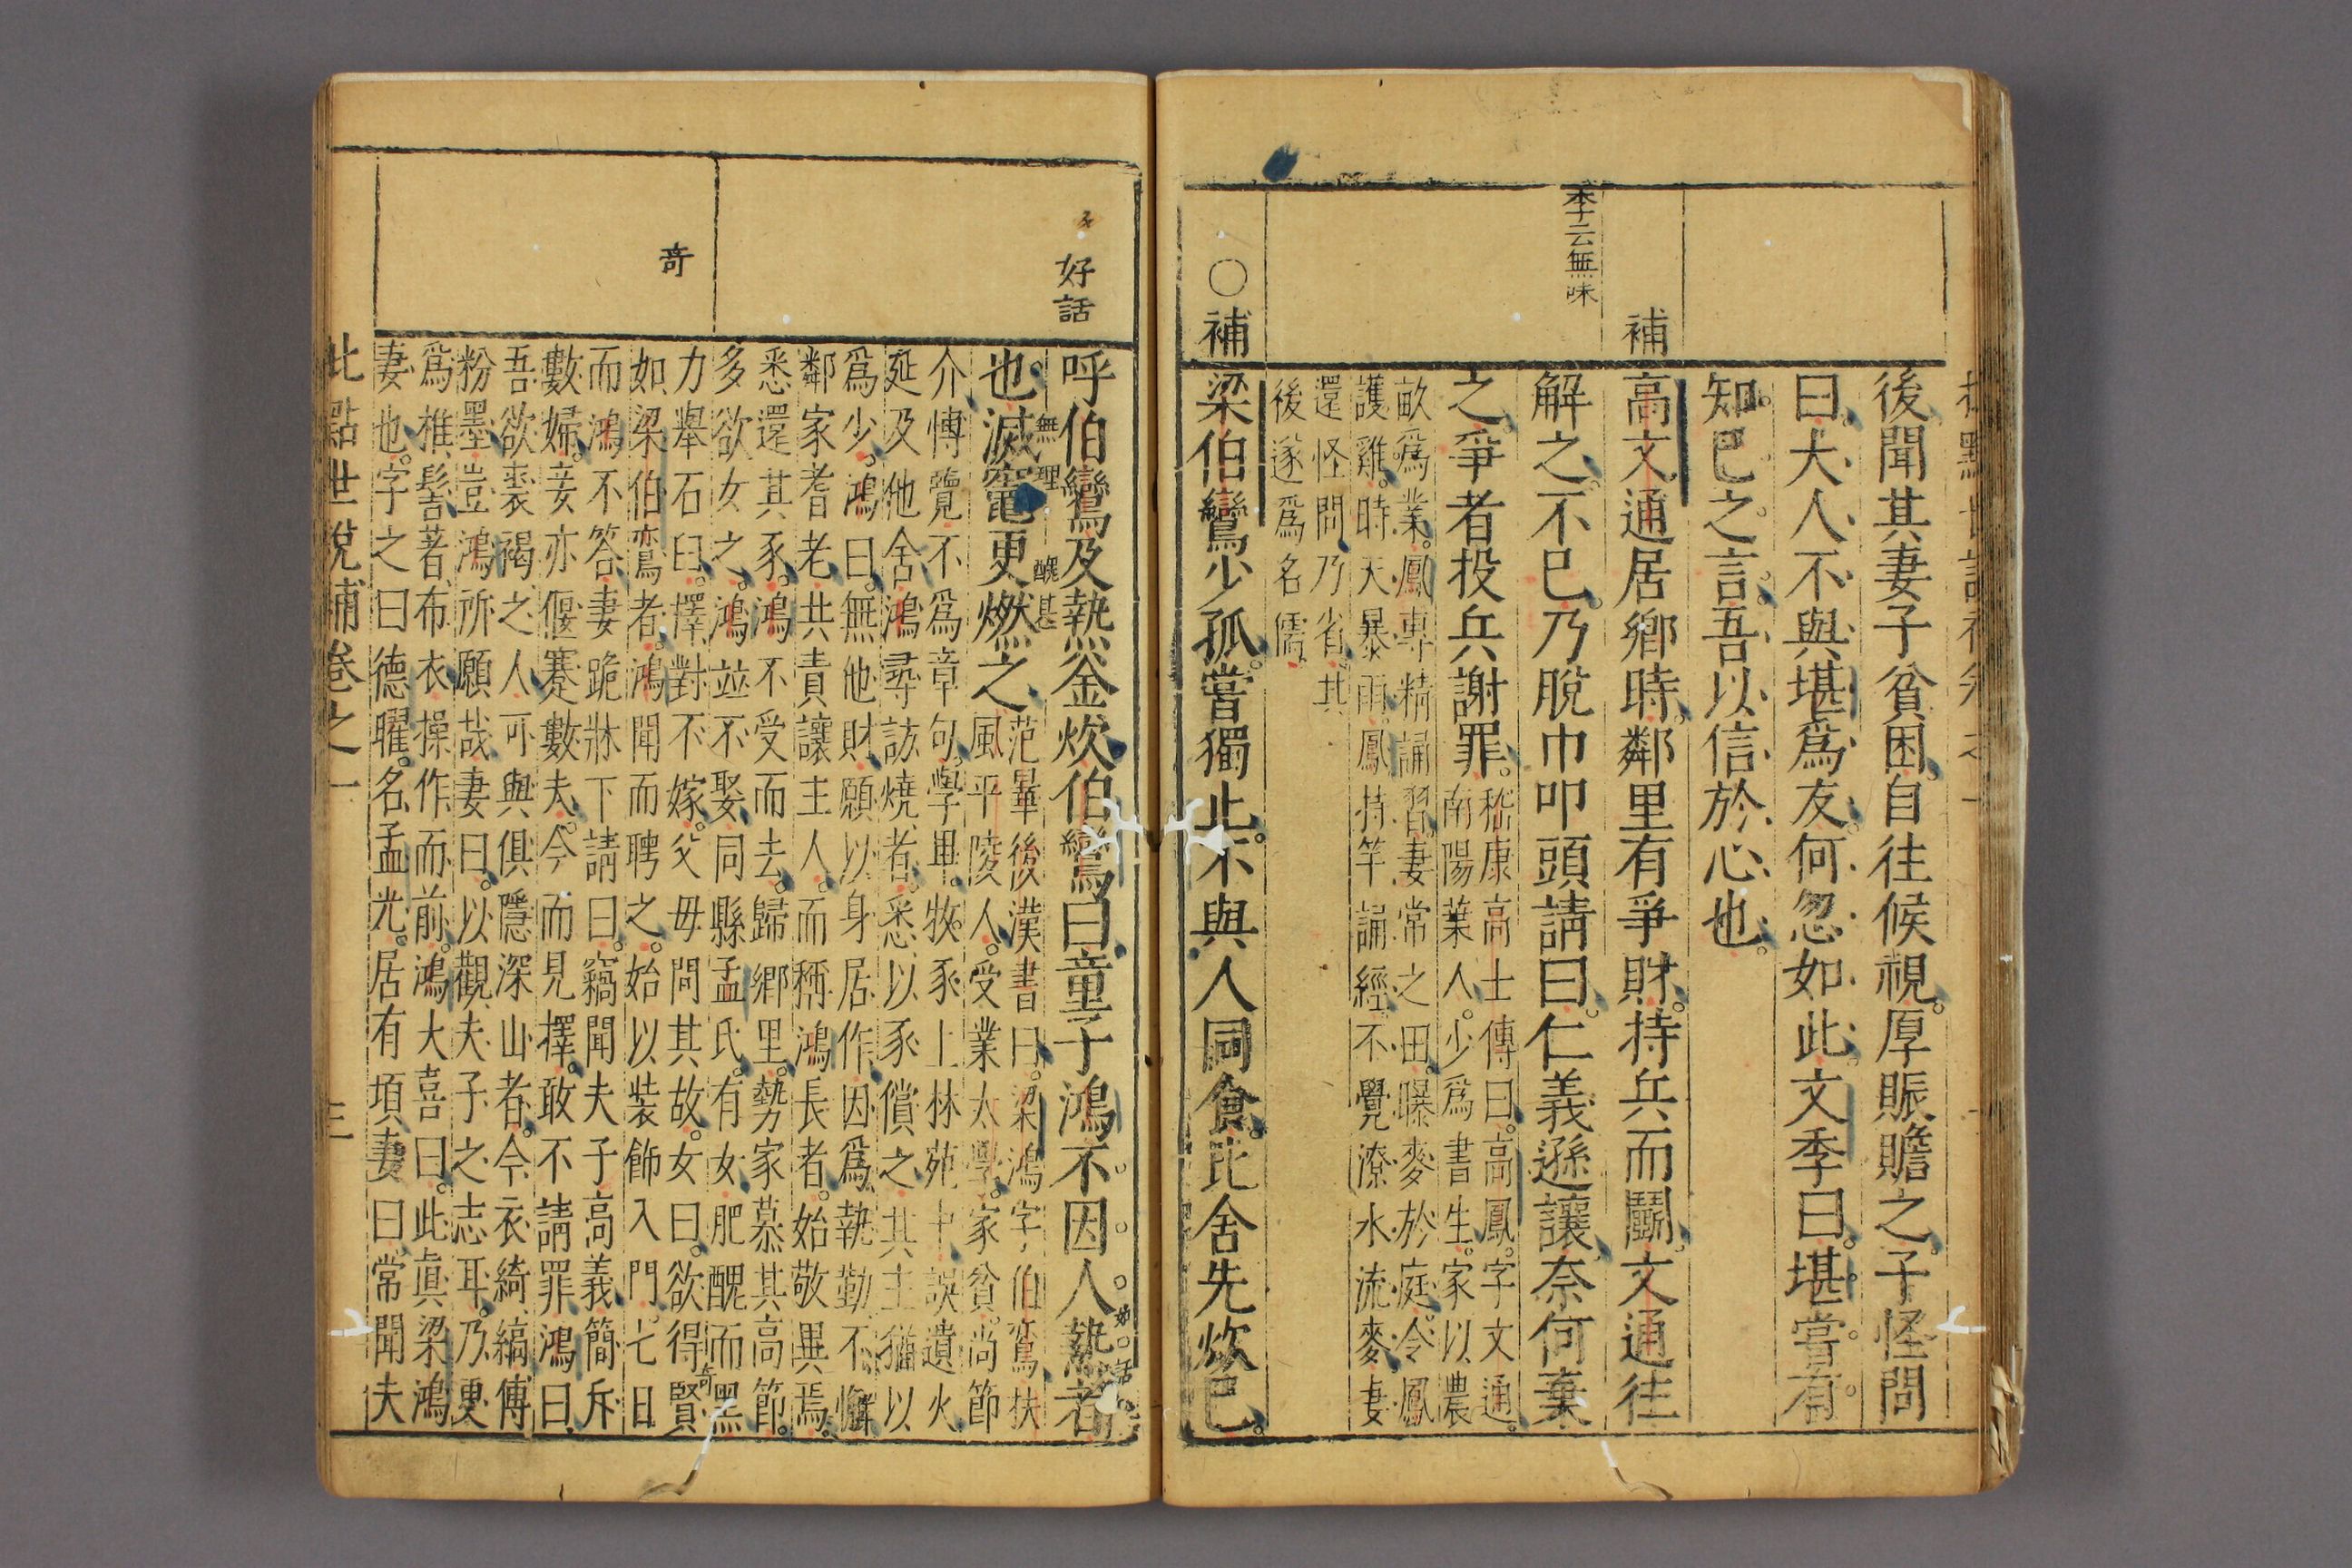 後聞其妻子貧困自往候視厚賑贍之子怪問
曰大人不與堪爲友何忽如此文季曰堪嘗有
知已之言吾以信於心也
補
高文通居鄉時鄰里有爭財持兵而鬬文通往
李云無味
解之不已乃脫巾叩頭請曰仁義遜讓奈何棄
之爭者投兵謝罪
嵇康高士傳曰高鳳字文通
南陽葉人少爲書生家以農
畝爲業鳳專精誦習妻常之田曝麥於庭令鳳
護雞時天暴雨鳳持竿誦經不覺潦水流麥妻
還怪問乃省其
後遂爲名儒
○補
梁伯鸞少孤嘗獨止不與人同食比舍先炊已
好話
呼伯鸞及熱釜炊伯鸞曰童子鴻不因人熱者
好話
無理
醜甚
也滅竈更燃之
范曅後漢書曰梁鴻字伯鸞扶
風平陵人受業太學家貧尚節
介愽覽不爲章句學畢牧豕上林苑中誤遺火
延及他舍鴻尋訪燒者悉以豕償之其主猶以
爲少鴻曰無他財願以身居作因爲執勤不懈
鄰家耆老共責讓主人而稱鴻長者始敬異焉
悉還其豕鴻不受而去歸鄉里勢家慕其高節
多欲女之鴻竝不娶同縣孟氏有女肥醜而黑
奇
奇
力舉石臼擇對不嫁父毋問其故女曰欲得賢
如梁伯鸞者鴻聞而聘之始以裝飾入門七日
而鴻不答妻跪牀下請曰竊聞夫子高義簡斥
數婦妾亦偃蹇數夫今而見擇敢不請罪鴻曰
吾欲裘褐之人可與俱隱深山者今衣綺縞傅
粉墨豈鴻所願哉妻曰以觀夫子之志耳乃更
爲椎髻著布衣操作而前鴻大喜曰此眞梁鴻
妻也字之曰德曜名孟光居有項妻曰常聞夫
批點世說補卷之一
三